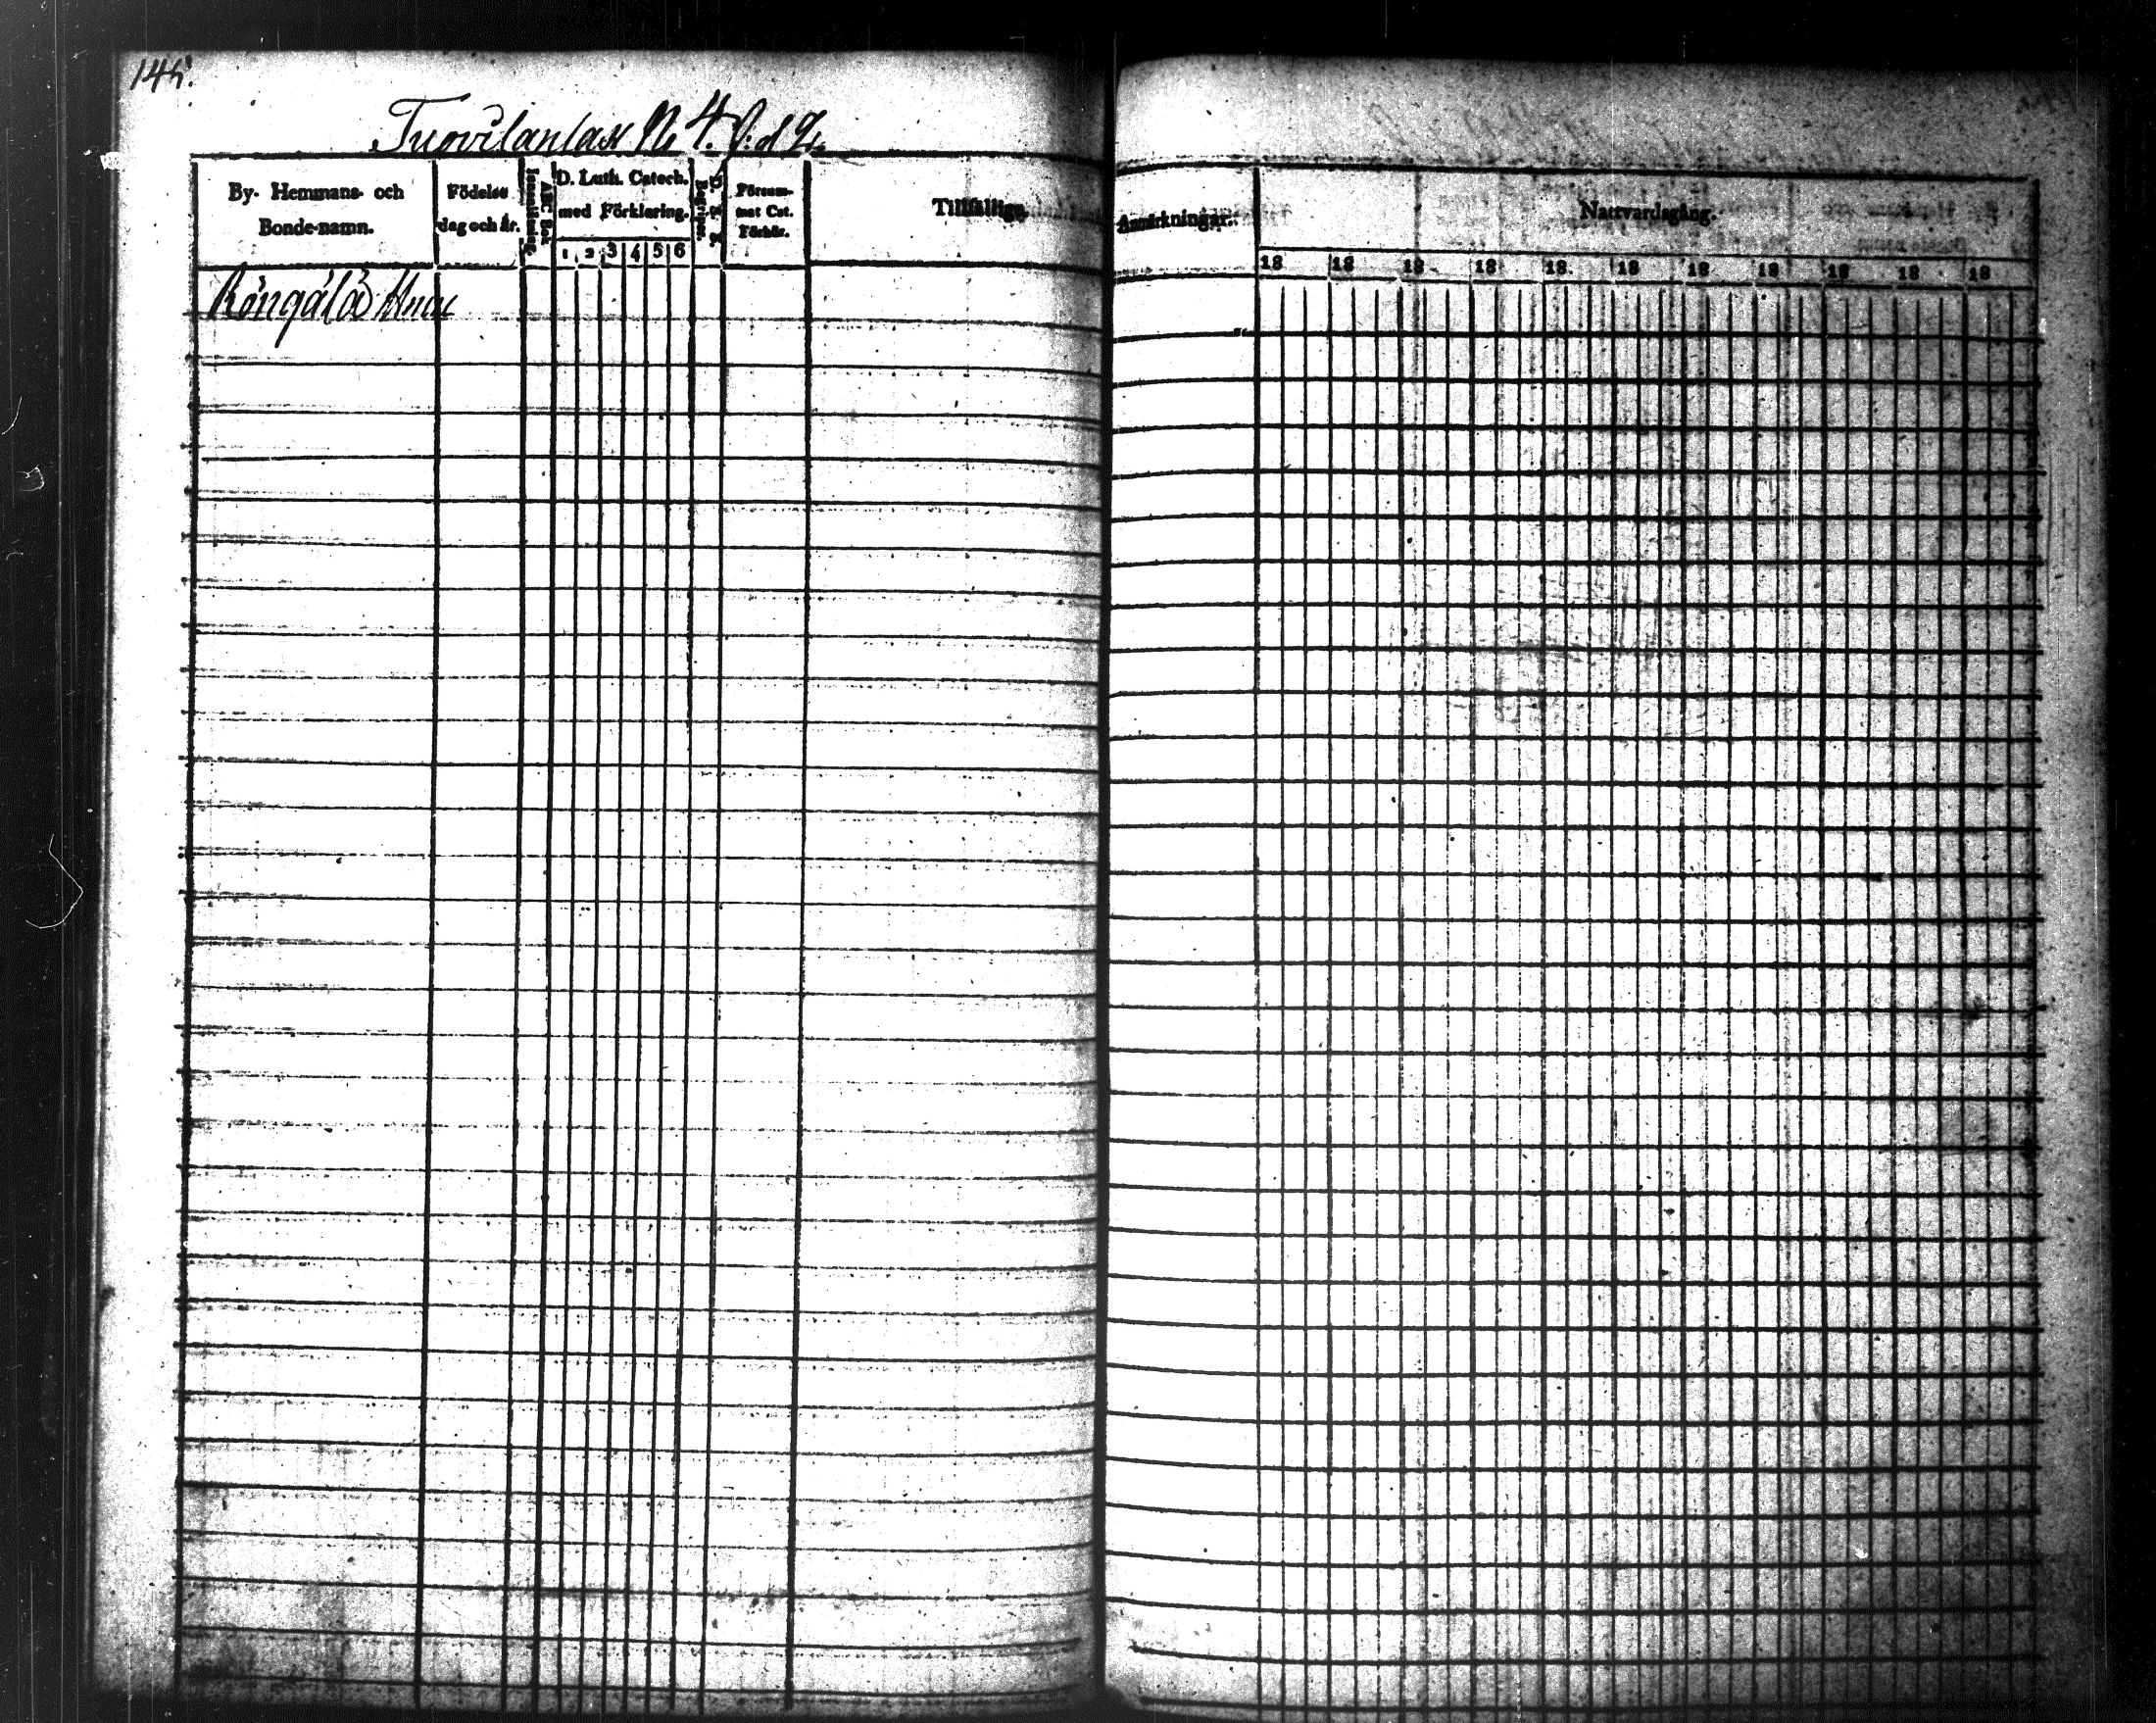 145.
Tuovilanlax No 4.
By- Hemmans- och
Bonde-namn.
Födelse
dag och år.
ABC Bok
Innanläsning.
D. Luth. Catech.
med Förklaring.
1 2 3 4 5 6
Begripn.
Försum-
mat Cat.
Förhör.
Tillfällige
Anmärkningar.
Nattvardsgång.
18 18 18 18 18 18 18 18 18 18 18